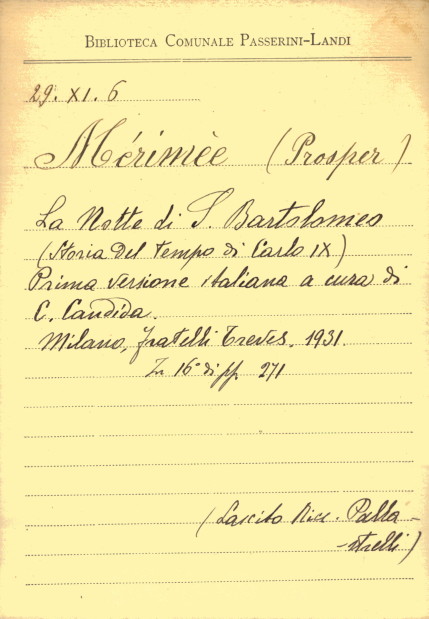 BIBLIOTECA COMUNALE PASSERINI-LANDI
29. XI. 6
Mérimèe (Prosper)
La Notte di S. Bartolomeo
(Storia del tempo di Carlo IX)
Prima versione italiana a cura di
C. Candida.
Milano, fratelli Treves. 1931.
In 16° di pp. 271
(Lascito Ricc. Palla-
-strelli)